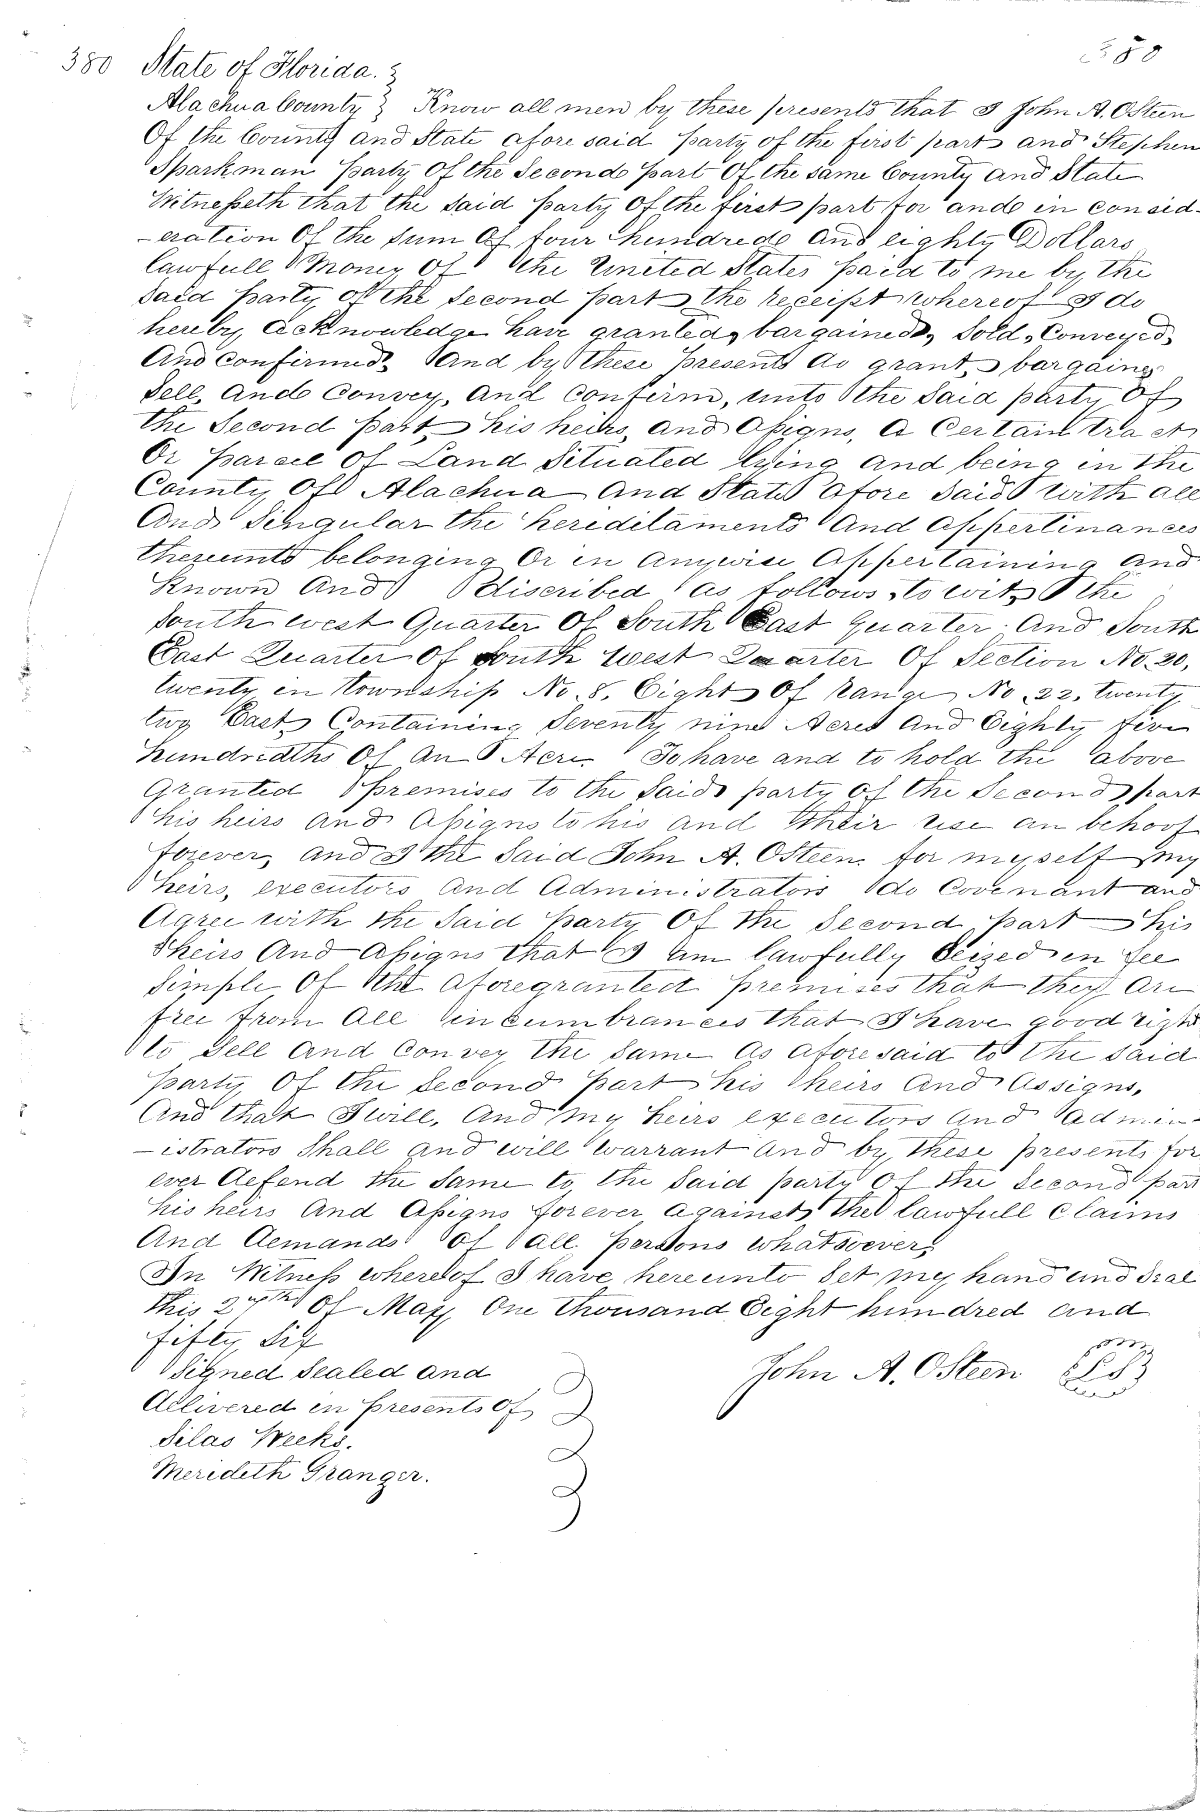 380 State of Florida. 380
Alachua County Know all men by these presents that I John A. OSteen
Of the County and State afore said party of the first part and Stephen
Sparkman party Of the Second part Of the same County and State
Witnesseth that the said party Of the first part for and in consid-
-eration Of the sum Of four hundred and eighty Dollars
lawfull Money Of the United States paid to me by the
said party of the second part the receipt whereof I do
hereby acknowledge have granted, bargained, Sold, Conveyed,
And confirmed, And by these presents do grant, bargain,
Sell, and convey, And confirm, unto the said party Of
the Second part, his heirs, and Assigns, a Certain tract
Or parcel Of Land Situated lying and being in the
County Of Alachua and State afore said with all
And Singular the hereditaments And appertinances
thereunto belonging Or in anywise Appertaining and
Known And discribed as follows, to wit, the
South west Quarter Of South East Quarter And South
East Quarter Of South West Quarter Of Section No. 20,
twenty in township No. 8, Eight Of range No. 22, twenty
two East, Containing Seventy nine Acres and Eighty five
hundredths Of An Acre To have and to hold the above
granted premises to the said party of the Second part
his heirs and Assigns to his and their use an behoof
forever, and I the Said John A. OSteen for myself my
heirs, executors and Administrators do Covenant and
Agree with the Said Party Of the Second part his
heirs And Assigns that I am lawfully Seized in fee
Simple Of the aforegranted premises that they are
free from All incumbrances that I have good right
to Sell and Convey the Same As aforesaid to the said
party Of the Second part his heirs and Assigns,
And that I will, And my heirs executors and admin-
-istrators Shall and will warrant and by these presents for
ever defend the same to the said party Of the Second part
his heirs And Assigns forever against the lawfull Claims
And demands of all persons whatsoever,
In Witness whereof I have hereunto Set my hand and Seal
this 27th Of May One thousand Eight hundred and
fifty Six
Signed Sealed and John A. OSteen LS
delivered in presents of
Silas Weeks.
Merideth Granger.